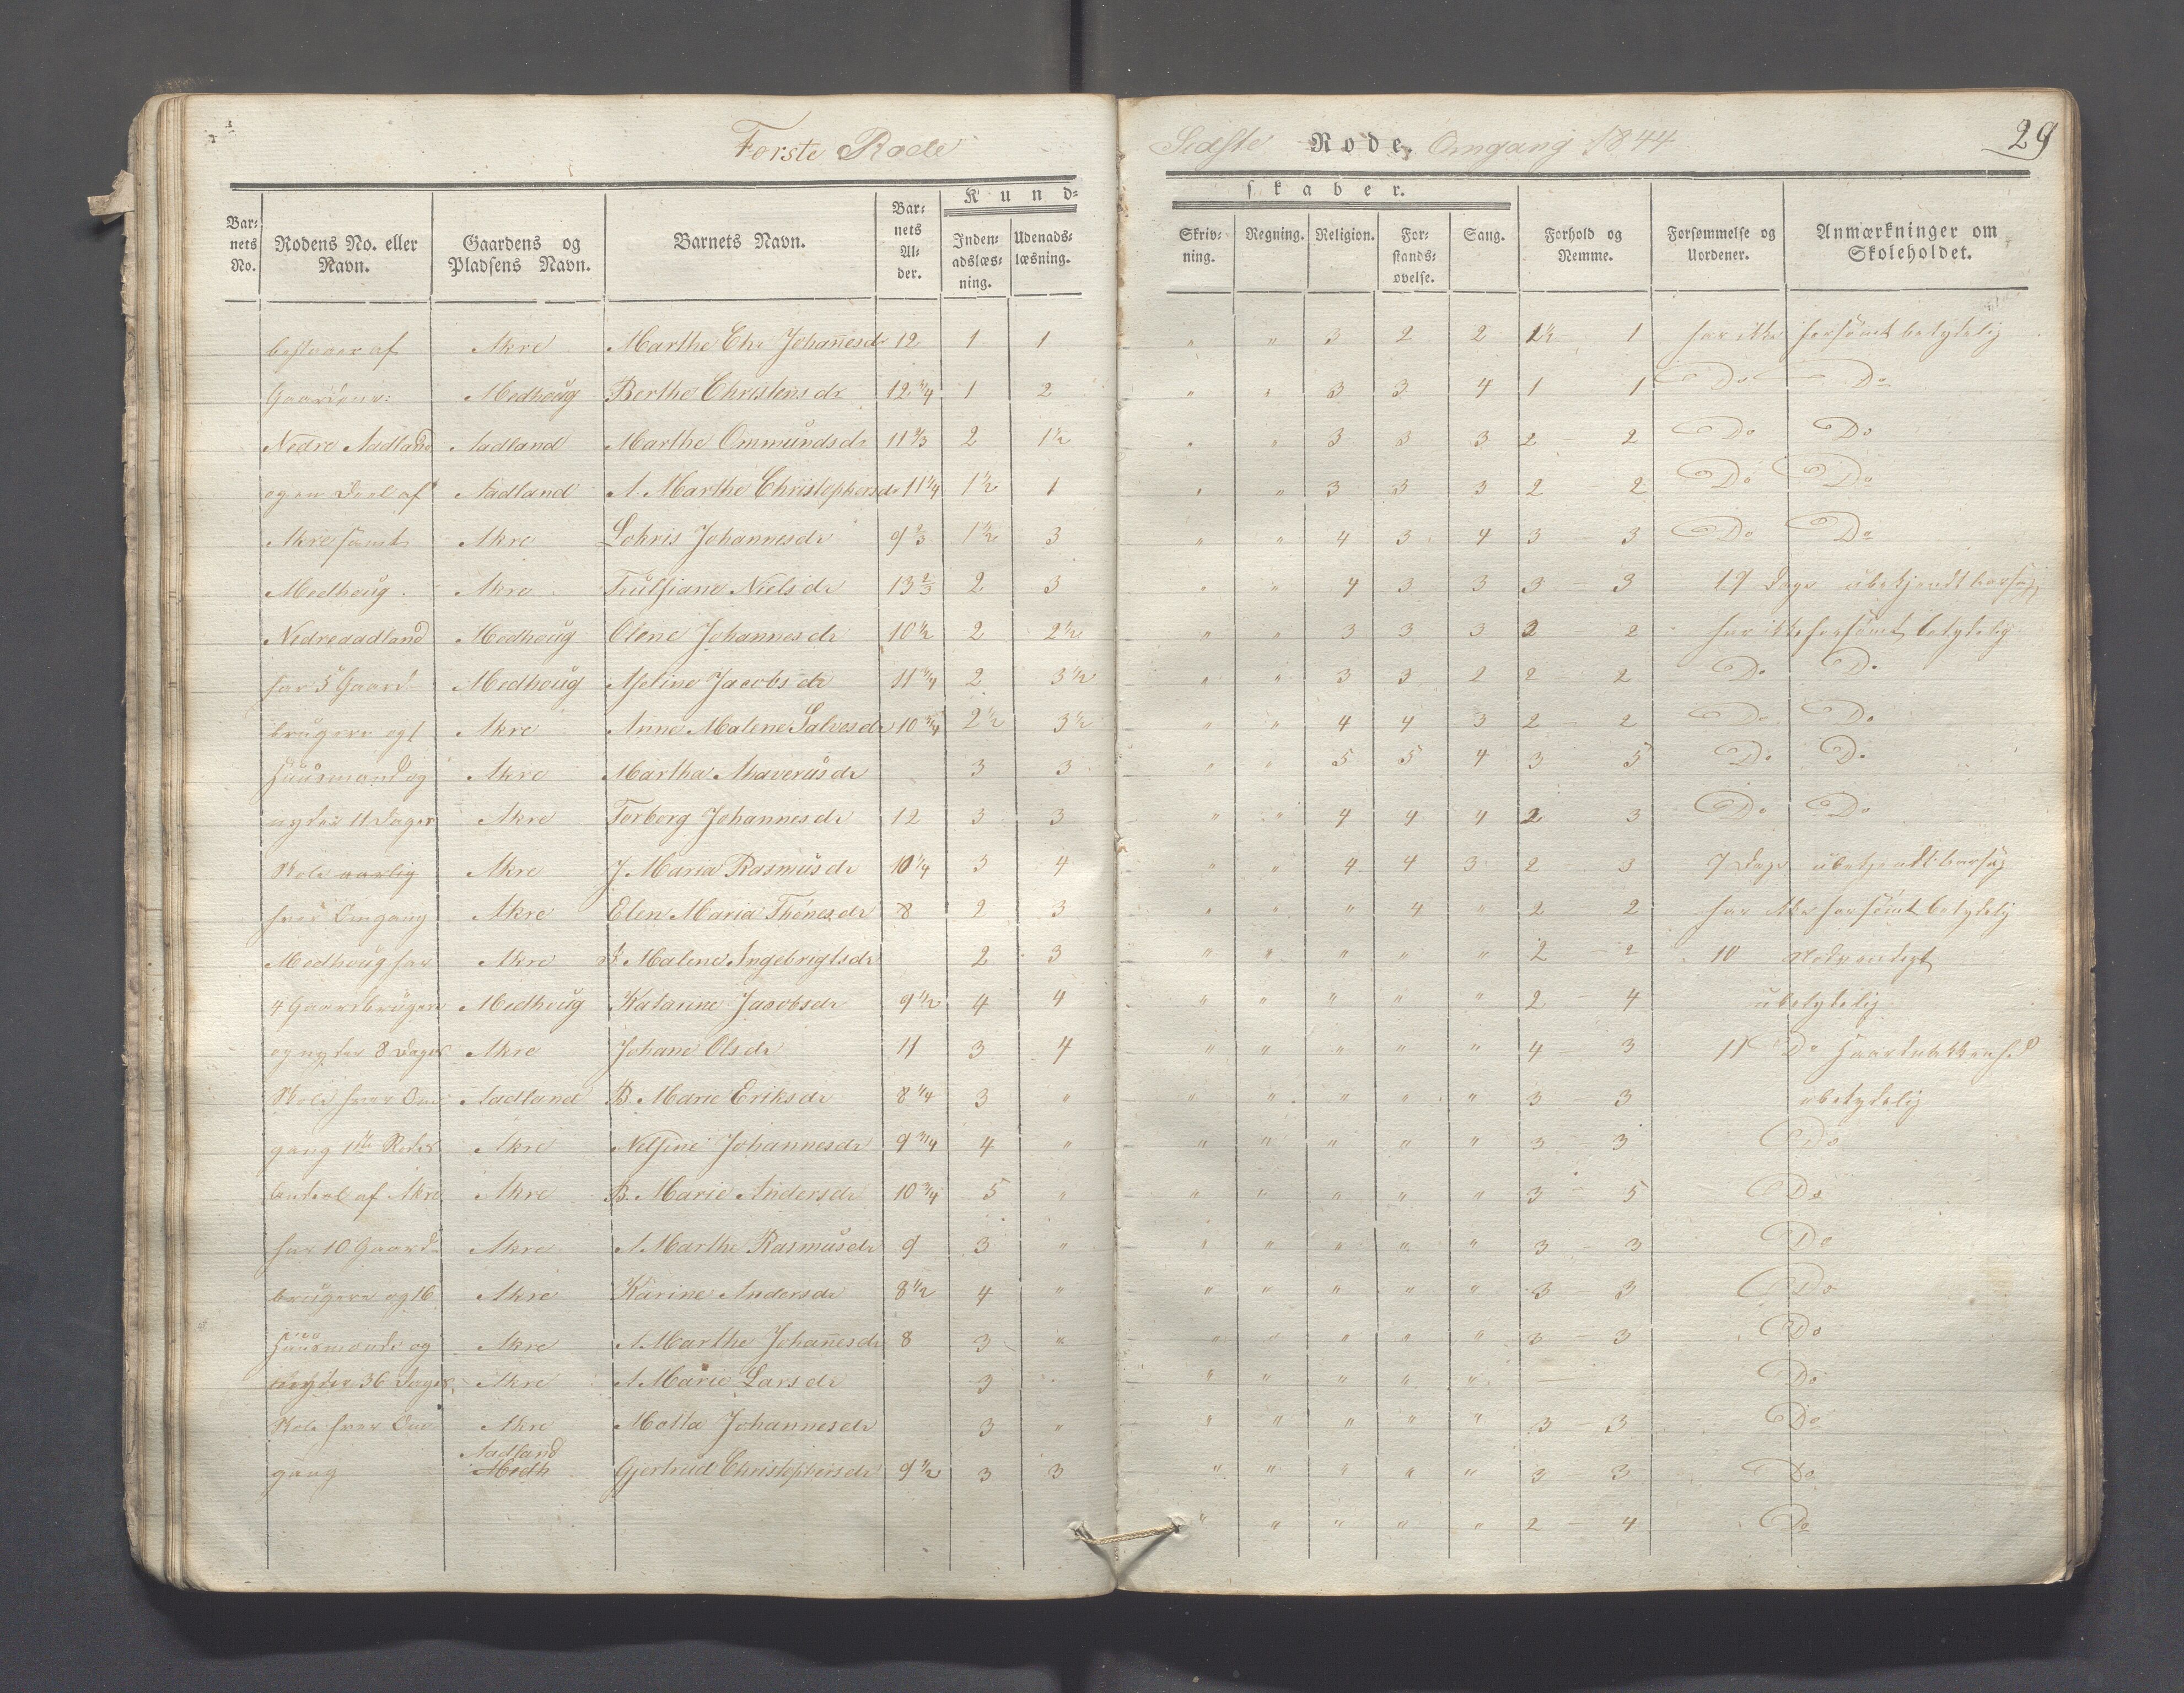 Første Rode
Sidste Rode, Omgang 1844
29
Kund-
skaber.
Bar-nets No. | Rodens No. eller Navn. | Gaardens og Pladsens Navn. | Barnets Navn. | Bar-nets Al-der. | Inden-adslæs-ning. | Udenads-læsning. | Skriv-ning. | Regning. | Religion. | For-stands-øvelse. | Sang. | Forhold og Nemme. | Forsømmelse og Uordener. | Anmærkninger om Skoleholdet.
bestaaer af | Akre | Marthe Chr Johañesdr | 12 | 1 | 1 | " | " | 3 | 2 | 2 | 1½ 1 | har ikke forsømt betydelig
Gaardene: | Medhoug | Berthe Christensdr | 12 ¾ | 1 | 2 | " | " | 3 | 3 | 4 | 1 1 | Do | Do
Nedre Aadland | Aadland | Marthe Ommundsdr | 11 ⅔ | 2 | 1½ | " | " | 3 | 3 | 3 | 2 2 | Do | Do
og en Deel af | Aadland | A Marthe Christophersdr | 11 ¼ | 1½ | 1 | " | " | 3 | 3 | 3 | 2 - 2 | Do | Do
Akre samt | Akre | Johannesdr | 9 ⅔ | 1½ | 3 | " | " | 4 | 3 | 4 | 3 - 3 | Do | Do
Medhoug. | Akre | Nielsdr | 13 ⅔ | 2 | 3 | " | " | 4 | 3 | 3 | 3 - 3 | 19 Dage
Nedreaadland | Medhoug | Olene Johannesdr | 10 ½ | 2 | 2½ | " | " | 3 | 3 | 3 | 2 - 2 | har ikke forsømt betydelig
har 5 Gaard- | Medhoug | Jacobsdr | 11 ¾ | 2 | 3½ | " | " | 3 | 3 | 2 | 2 - 2 | Do | Do
brugere og 1 | Akre | Anne Malene Salvesdr | 10 ¾ | 2½ | 3½ | " | " | 4 | 4 | 3 | 2 - 2 | Do | Do
Huusmand og | Akre | Martha | 3 | 3 | " | " | 5 | 5 | 4 | 3 - 5 | Do | Do
nyder 11 Dager | Akre | Torborg Johannesdr | 12 | 3 | 3 | " | " | 4 | 4 | 4 | 2 3 | Do | Do
Skole aarlig | Akre | J Maria Rasmusdr | 10 ¼ | 3 | 4 | " | " | 4 | 4 | 3 | 2 - 3 | 7 Dage
hver Omgang | Akre | Elen Maria Thønesdr | 8 | 2 | 3 | " | " | " | 4 | " | 2 - 2 | har ikke forsømt betydelig
Medhoug har | Akre | Malene Ingebrigtsdr | 2 | 3 | " | " | " | " | " | 2 - 2 | 10 nødvendigt
4 Gaardbrugere | Medhoug | Katarine Jacobsdr | 9 ½ | 4 | 4 | " | " | " | " | " | 2 - 4 | ubetydelig
og nyder 8 Dages | Akre | Johane Olsdr | 11 | 3 | 4 | " | " | " | " | " | 4 - 3 | 11 Do
Skole hver Om- | Aadland | B Marie Eriksdr | 8 ¼ | 3 | " | " | " | " | " | " | 3 3 | ubetydelig
gang | Akre | Nelsine Johannesdr | 9 ¾ | 4 | " | " | " | " | " | " | 3 - 3 | Do
af Akre | Akre | B. Marie Andersdr | 10 ¾ | 5 | " | " | " | " | " | " | 3 - 5 | Do
har 10 Gaard- | Akre | A Marthe Rasmusdr | 9 | 3 | " | " | " | " | " | " | 3 - 3 | Do
brugere og 16 | Akre | Karine Andersdr | 8 ½ | 4 | " | " | " | " | " | " | 3 - 3 | Do
Huusmænd og | Akre | A Marthe Johañesdr | 8 | 3 | " | " | " | " | " | " | 3 - 3 | Do
nyder 36 Dages | Akre | A Marie Larsdr | 3 | " | " | " | " | " | — | Do
Skole hver Om- | Akre | Johannesdr | 3 | " | " | " | " | " | " | 3 - 3 | Do
gang | Aadland Medh | Gjertrud Christophersdr | 9 ½ | 3 | 3 | " | " | " | " | " | 3 - 3 | Do
" | " | " | " | " | 2 - 4 | Do